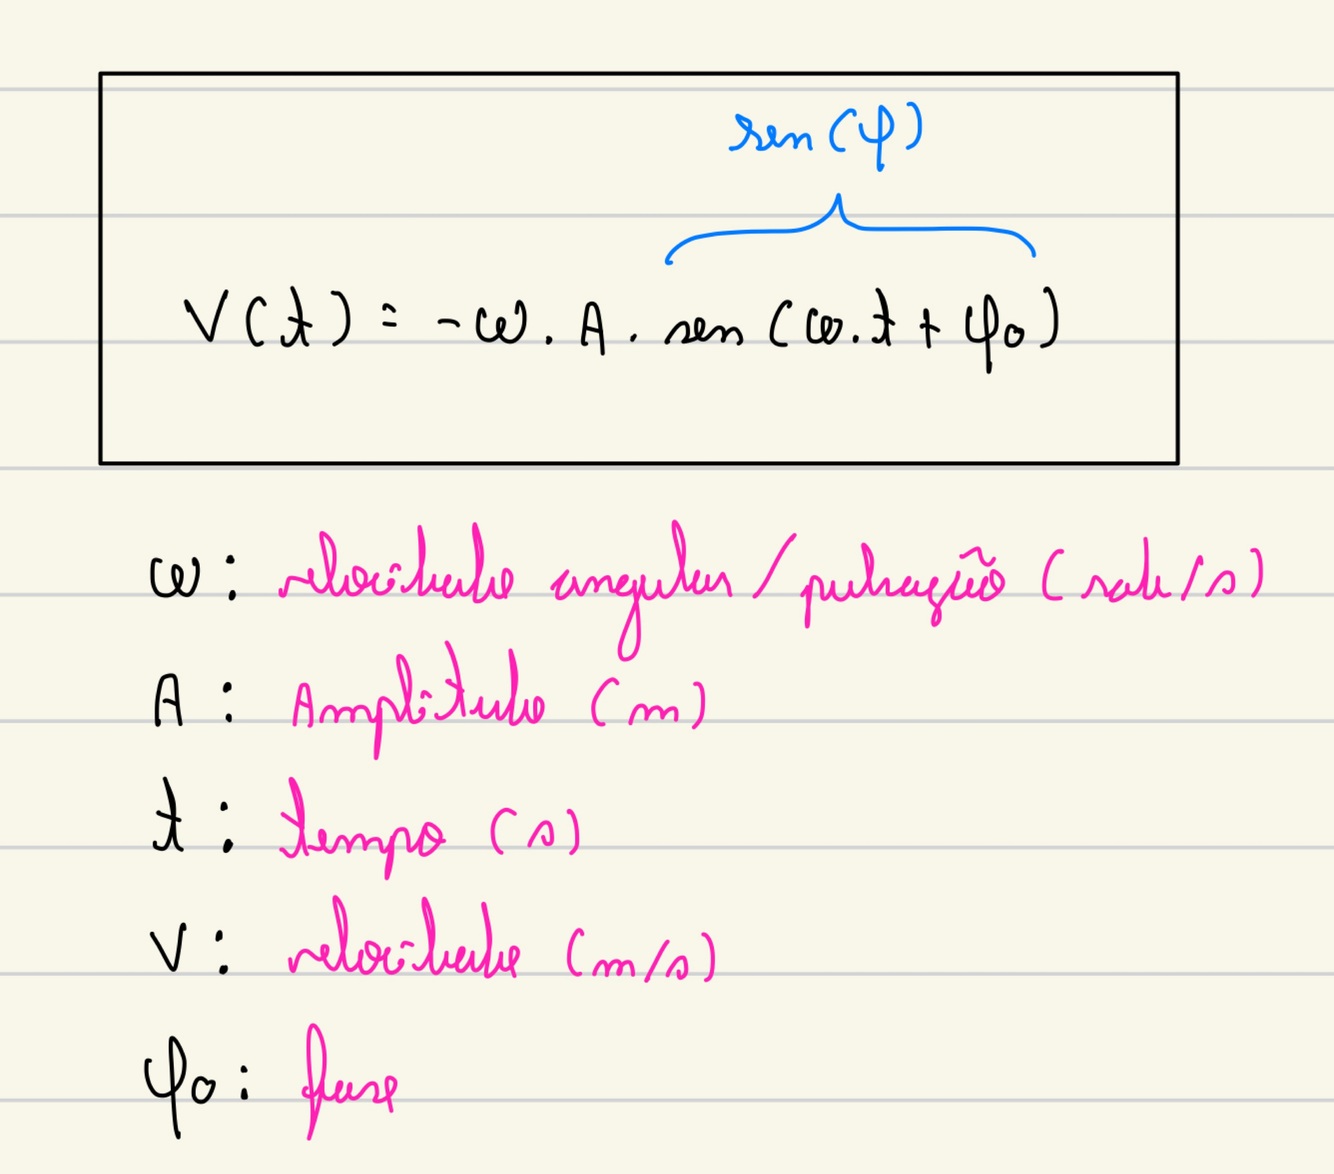 sen(φ)
V(t) = -ω . A . sen (ω.t + φ₀)
ω: velocidade angular / pulsação (rad/s)
A: Amplitude (m)
t: tempo (s)
V: velocidade (m/s)
φ₀: fase